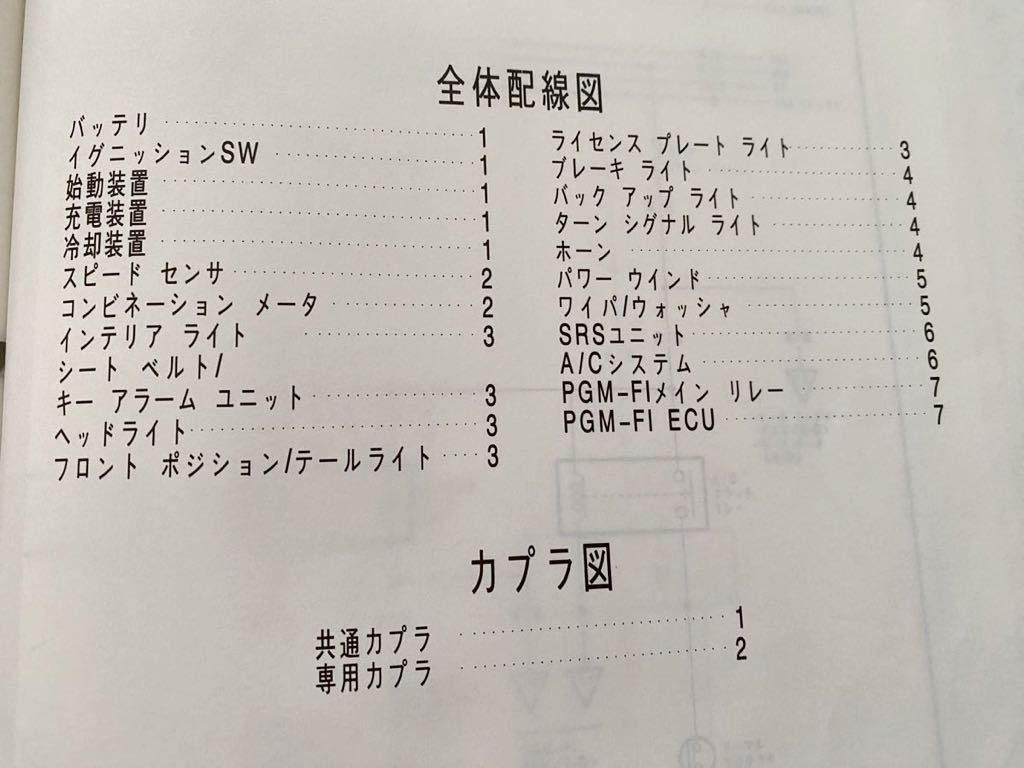 全体配線図
バッテリ 1
イグニッションSW 1
始動装置 1
充電装置 1
冷却装置 1
スピード センサ 2
コンビネーション メータ 2
インテリア ライト 3
シート ベルト/
キー アラーム ユニット 3
ヘッドライト 3
フロント ポジション/テールライト 3
ライセンス プレート ライト 3
ブレーキ ライト 4
バック アップ ライト 4
ターン シグナル ライト 4
ホーン 4
パワー ウインド 5
ワイパ/ウォッシャ 5
SRSユニット 6
A/Cシステム 6
PGM-FIメイン リレー 7
PGM-FI ECU 7
カプラ図
共通カプラ 1
専用カプラ 2